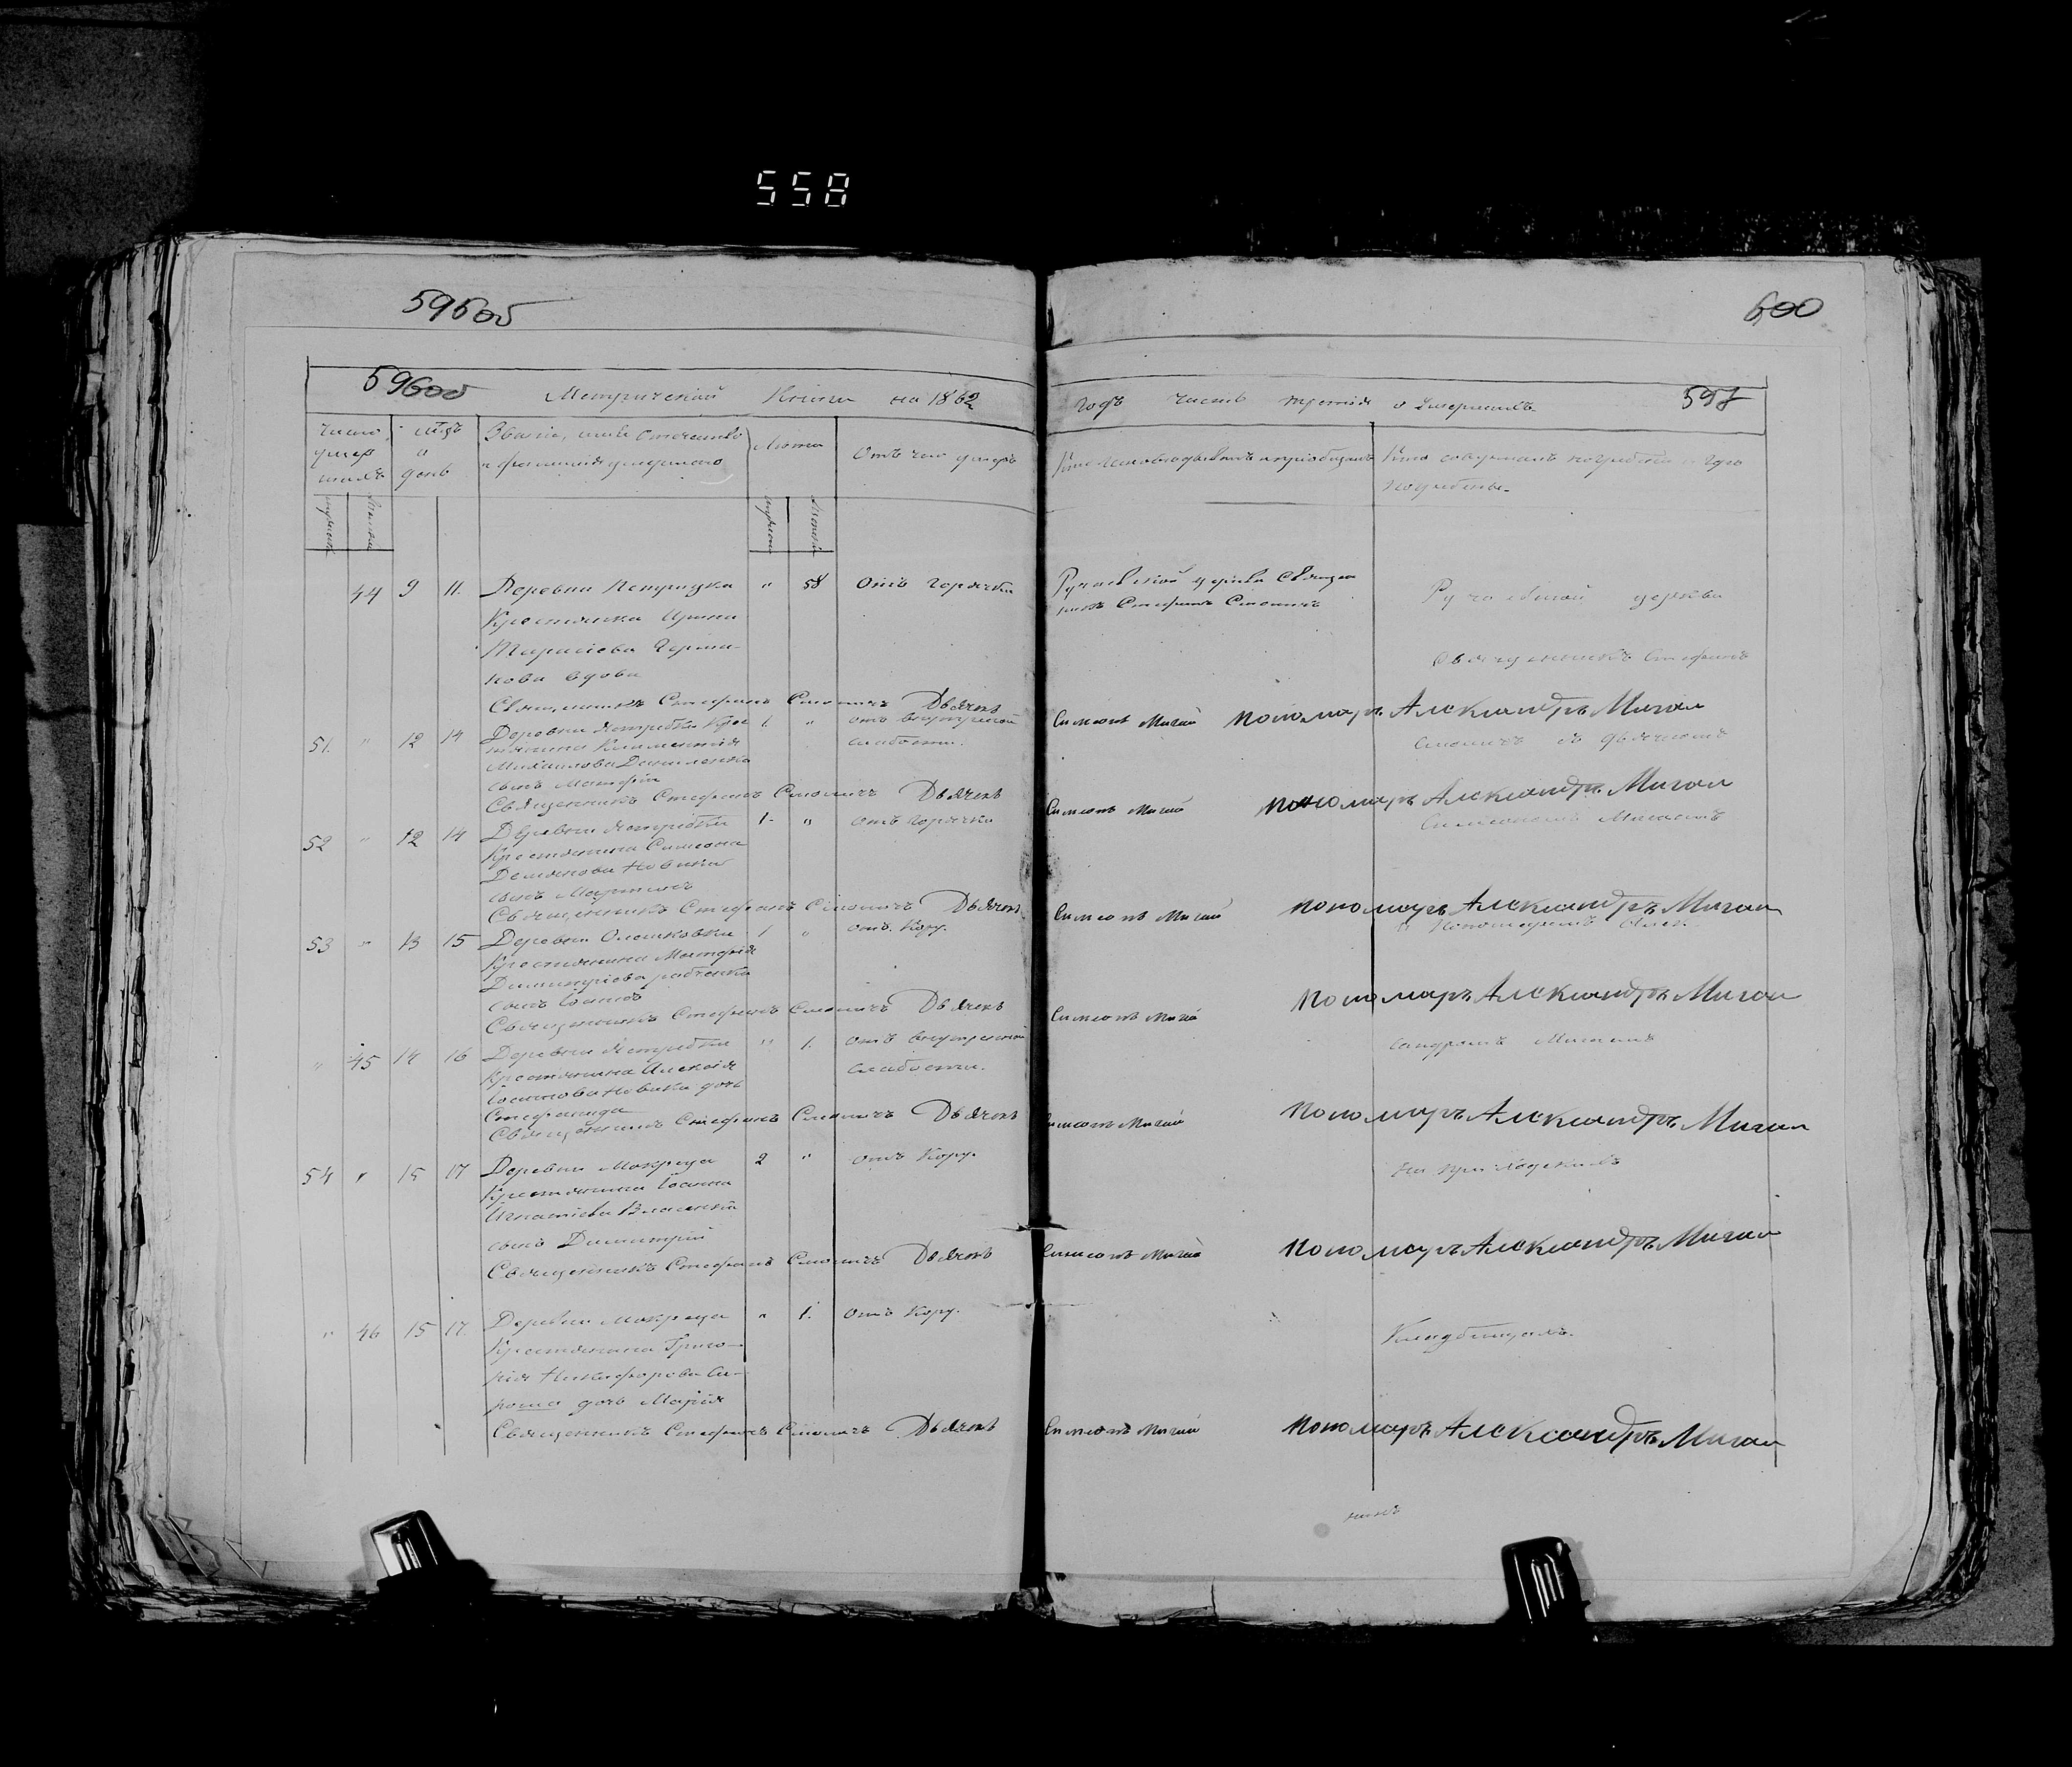 558
596об
600
596об
Метрической Книги на 1862
годъ часть третія о Умершихъ
597
число умер шихъ
мѣсъ и день
Званіе, имя отчество и фамилія умершаго
Лѣта
Отъ чего умеръ
Кто исповѣдывалъ и пріобщалъ
Кто совершалъ погребеніе и гдѣ
погребены
44 9 11. Деревни
Крестьянка Ирина
Тарасіева
кова вдова
" 58 Отъ горячки
Ручаевской церкви Священ
никъ Стефанъ Смоличъ
Ручаевской церкви
Священникъ Стефанъ
Священникъ Стефанъ Смоличъ Дьячекъ Симеонъ Мигай пономарь Александръ Мигай
51. " 12 14 Деревни Ястребки Крес
тьянина Климентія
Михаилова Даниленка
сынъ Матфій
1. " отъ внутренней
слабости.
Смоличъ съ дьячкомъ
Священникъ Стефанъ Смоличъ Дьячекъ Симеонъ Мигай пономарь Александръ Мигай
52 " 12 14 Деревни Ястребки
Крестьянина Симеона
Демянова Новика
сынъ Мартинъ
1. " Отъ горячки
Симеономъ Мигаемъ
Священникъ Стефанъ Смоличъ Дьячекъ Симеонъ Мигай пономарь Александръ Мигай
53 " 13 15 Деревни Олешковки
Крестьянина Матфія
Димитріева
сынъ Іоаннъ
1 " отъ Кору.
и пономаремъ Алек.
Священникъ Стефанъ Смоличъ Дьячекъ Симеонъ Мигай пономарь Александръ Мигай
" 45 14 16 Деревни Ястребки
Крестьянина Алексія
Іоаннова Новика дочь
Стефанида
" 1. отъ внутренней
слабости.
сандромъ Мигаемъ
Священникъ Стефанъ Смоличъ Дьячекъ Симеонъ Мигай пономарь Александръ Мигай
54 " 15 17 Деревни Мокреца
Крестьянина Іоанна
Игнатіева
сынъ Димитрій
2 " отъ Кору.
на приходскихъ
Священникъ Стефанъ Смоличъ Дьячекъ Симеонъ Мигай пономарь Александръ Мигай
" 46 15 17. Деревни Мокреца
Крестьянина Григо-
рія Никифорова Си-
роша дочь Марія
" 1. отъ Кору.
Кладбищахъ.
Священникъ Стефанъ Смоличъ Дьячекъ Симеонъ Мигай пономарь Александръ Мигай